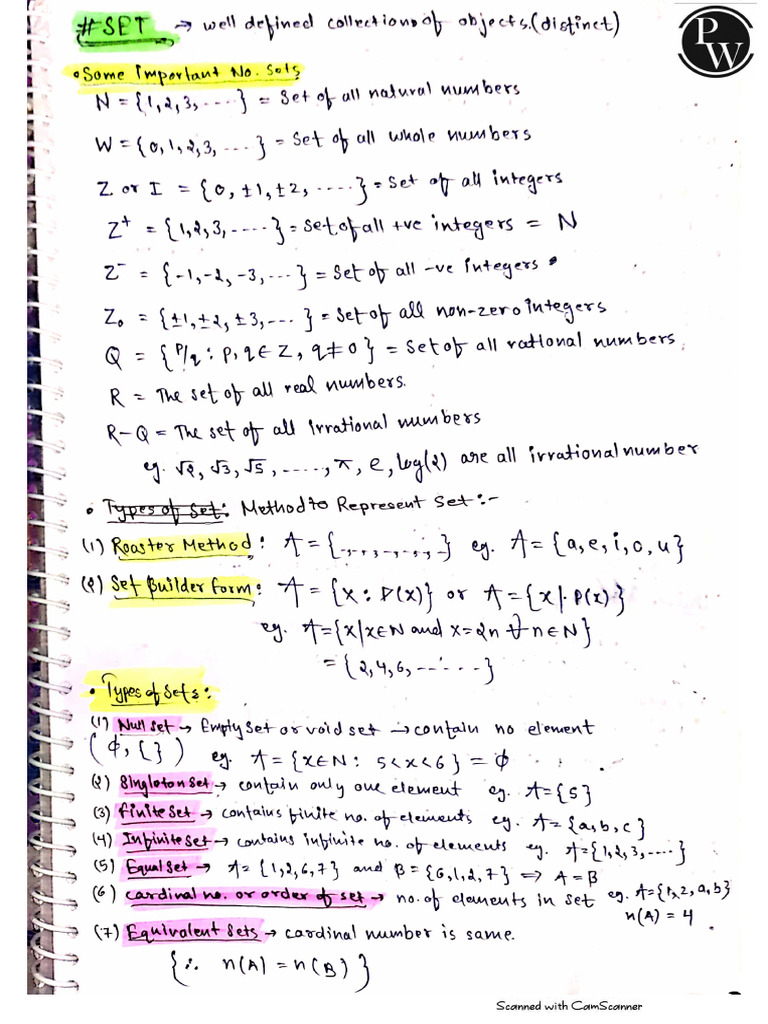 #SET → well defined collections of objects.(distinct)
PW
• Some important No. Sets
N = {1,2,3, .....} = Set of all natural numbers
W = {0,1,2,3, ....} = Set of all whole numbers
Z or I = {0, ±1, ±2, .....} = Set of all integers
Z⁺ = {1,2,3, .....} = Set of all +ve integers = N
Z⁻ = {-1,-2,-3, ....} = Set of all -ve integers
Z₀ = {±1, ±2, ±3, .... } = Set of all non-zero integers
Q = {P/q : p,q ∈ Z, q≠0} = Set of all rational numbers
R = The set of all real numbers.
R-Q = The set of all irrational numbers
eg. √2, √3, √5, ......, π, e, log(2) are all irrational number
• Types of Set: Method to Represent Set :-
(1) Roaster Method: A = {-,-,-,-,-,-,-} eg. A = {a,e,i,o,u}
(2) Set Builder form: A = {x : P(x)} or A = {x | P(x)}
eg. A={x|x∈N and x=2n ∀ n∈N}
= {2,4,6, ........}
• Types of Sets:
(1) Null set → Empty Set or void set → contain no element
(ϕ, { }) eg. A = {x∈N : 5<x<6} = ϕ
(2) Singleton Set → contain only one element eg. A={5}
(3) finite Set → contains finite no. of elements eg. A={a,b,c}
(4) Infinite Set → contains infinite no. of elements eg. A={1,2,3,.....}
(5) Equal Set → A={1,2,6,7} and B={6,1,2,7} ⇒ A=B
(6) Cardinal no. or order of set → no. of elements in set eg. A={1,2,a,b}
n(A) = 4
(7) Equivolent Sets → cardinal number is same.
{∴ n(A) = n(B)}
Scanned with CamScanner